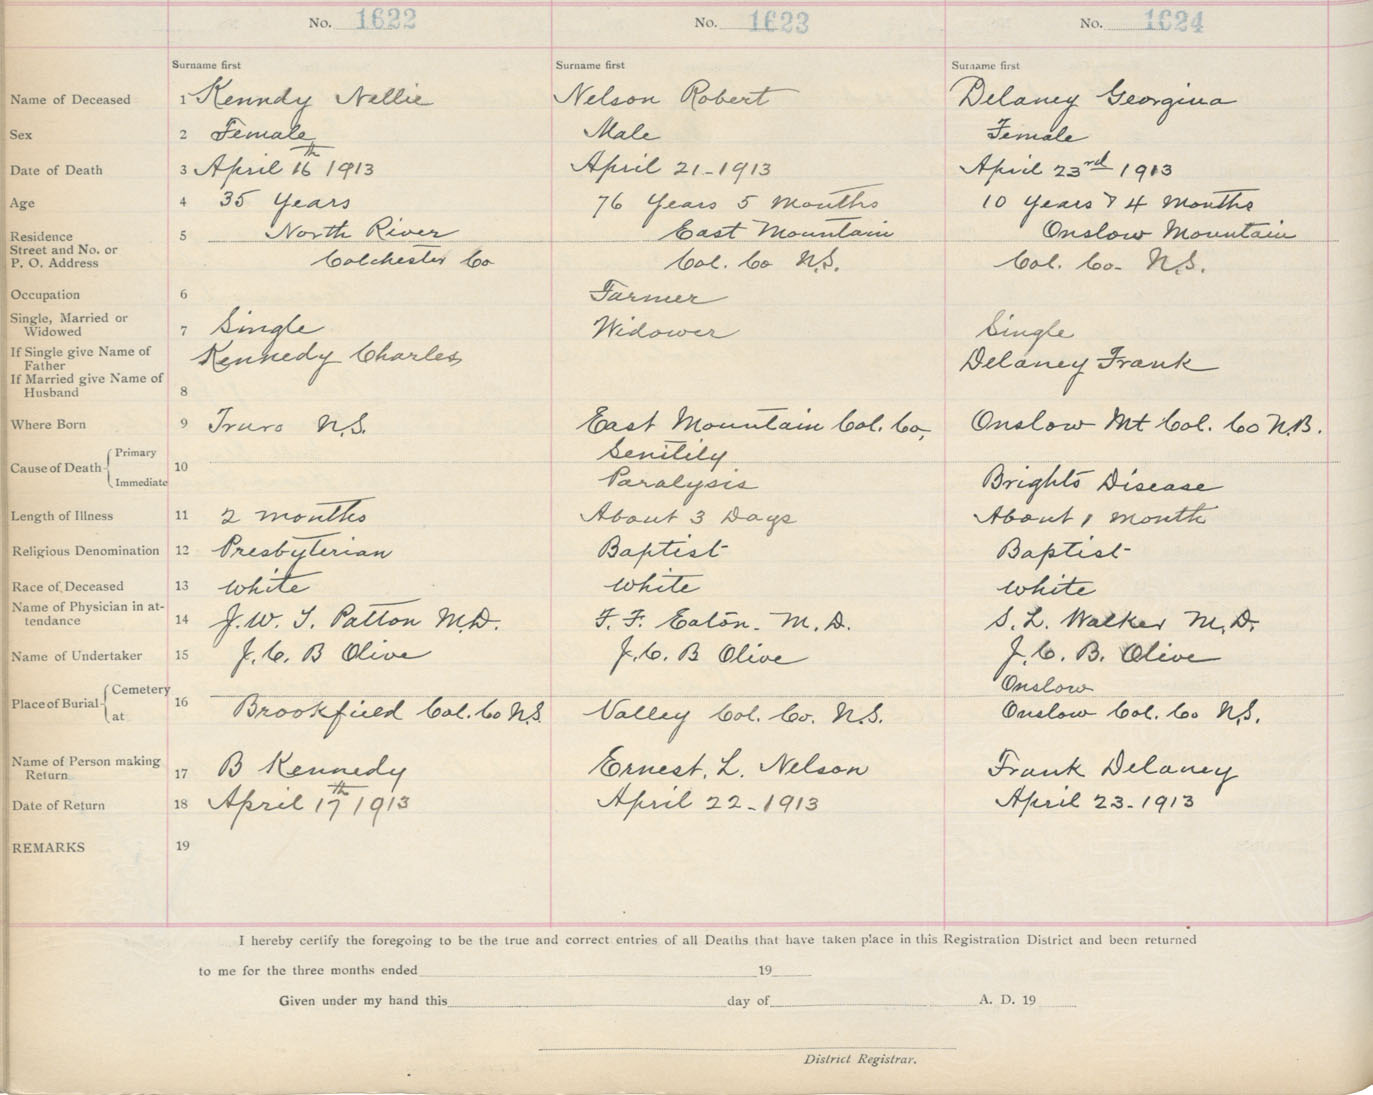 No. 1622 No. 1623 No. 1624
Surname first Surname first Surname first
Name of Deceased 1 Kenndy Nellie Nelson Robert Delaney Georgina
Sex 2 Female Male Female
Date of Death 3 April 16th 1913 April 21-1913 April 23rd 1913
Age 4 35 Years 76 Years 5 Months 10 Years & 4 Months
Residence 5 North River East Mountain Onslow Mountain
Street and No. or
P. O. Address Colchester Co Col. Co N.S. Col. Co- N.S.
Occupation 6 Farmer
Single, Married or
Widowed 7 Single Widower Single
If Single give Name of
Father Kennedy Charles Delaney Frank
If Married give Name of
Husband 8
Where Born 9 Truro N.S. East Mountain Col. Co, Onslow Mt Col. Co N.B.
Cause of Death 10
Primary Senitily
Immediate Paralysis Brights Disease
Length of Illness 11 2 months About 3 Days About 1 month
Religious Denomination 12 Presbyterian Baptist Baptist
Race of Deceased 13 White White White
Name of Physician in at-
tendance 14 J. W. T. Patton M.D. F. F. Eaton. M.D. S. L. Walker M.D.
Name of Undertaker 15 J. C. B Olive J. C. B Olive J. C. B. Olive
Place of Burial 16
Cemetery Onslow
at Brookfield Col. Co N.S. Valley Col. Co. N.S. Onslow Col. Co N.S.
Name of Person making
Return 17 B Kennedy Ernest. L. Nelson Frank Delaney
Date of Return 18 April 17th 1913 April 22-1913 April 23-1913
REMARKS 19
I hereby certify the foregoing to be the true and correct entries of all Deaths that have taken place in this Registration District and been returned
to me for the three months ended 19
Given under my hand this day of A. D. 19
District Registrar.